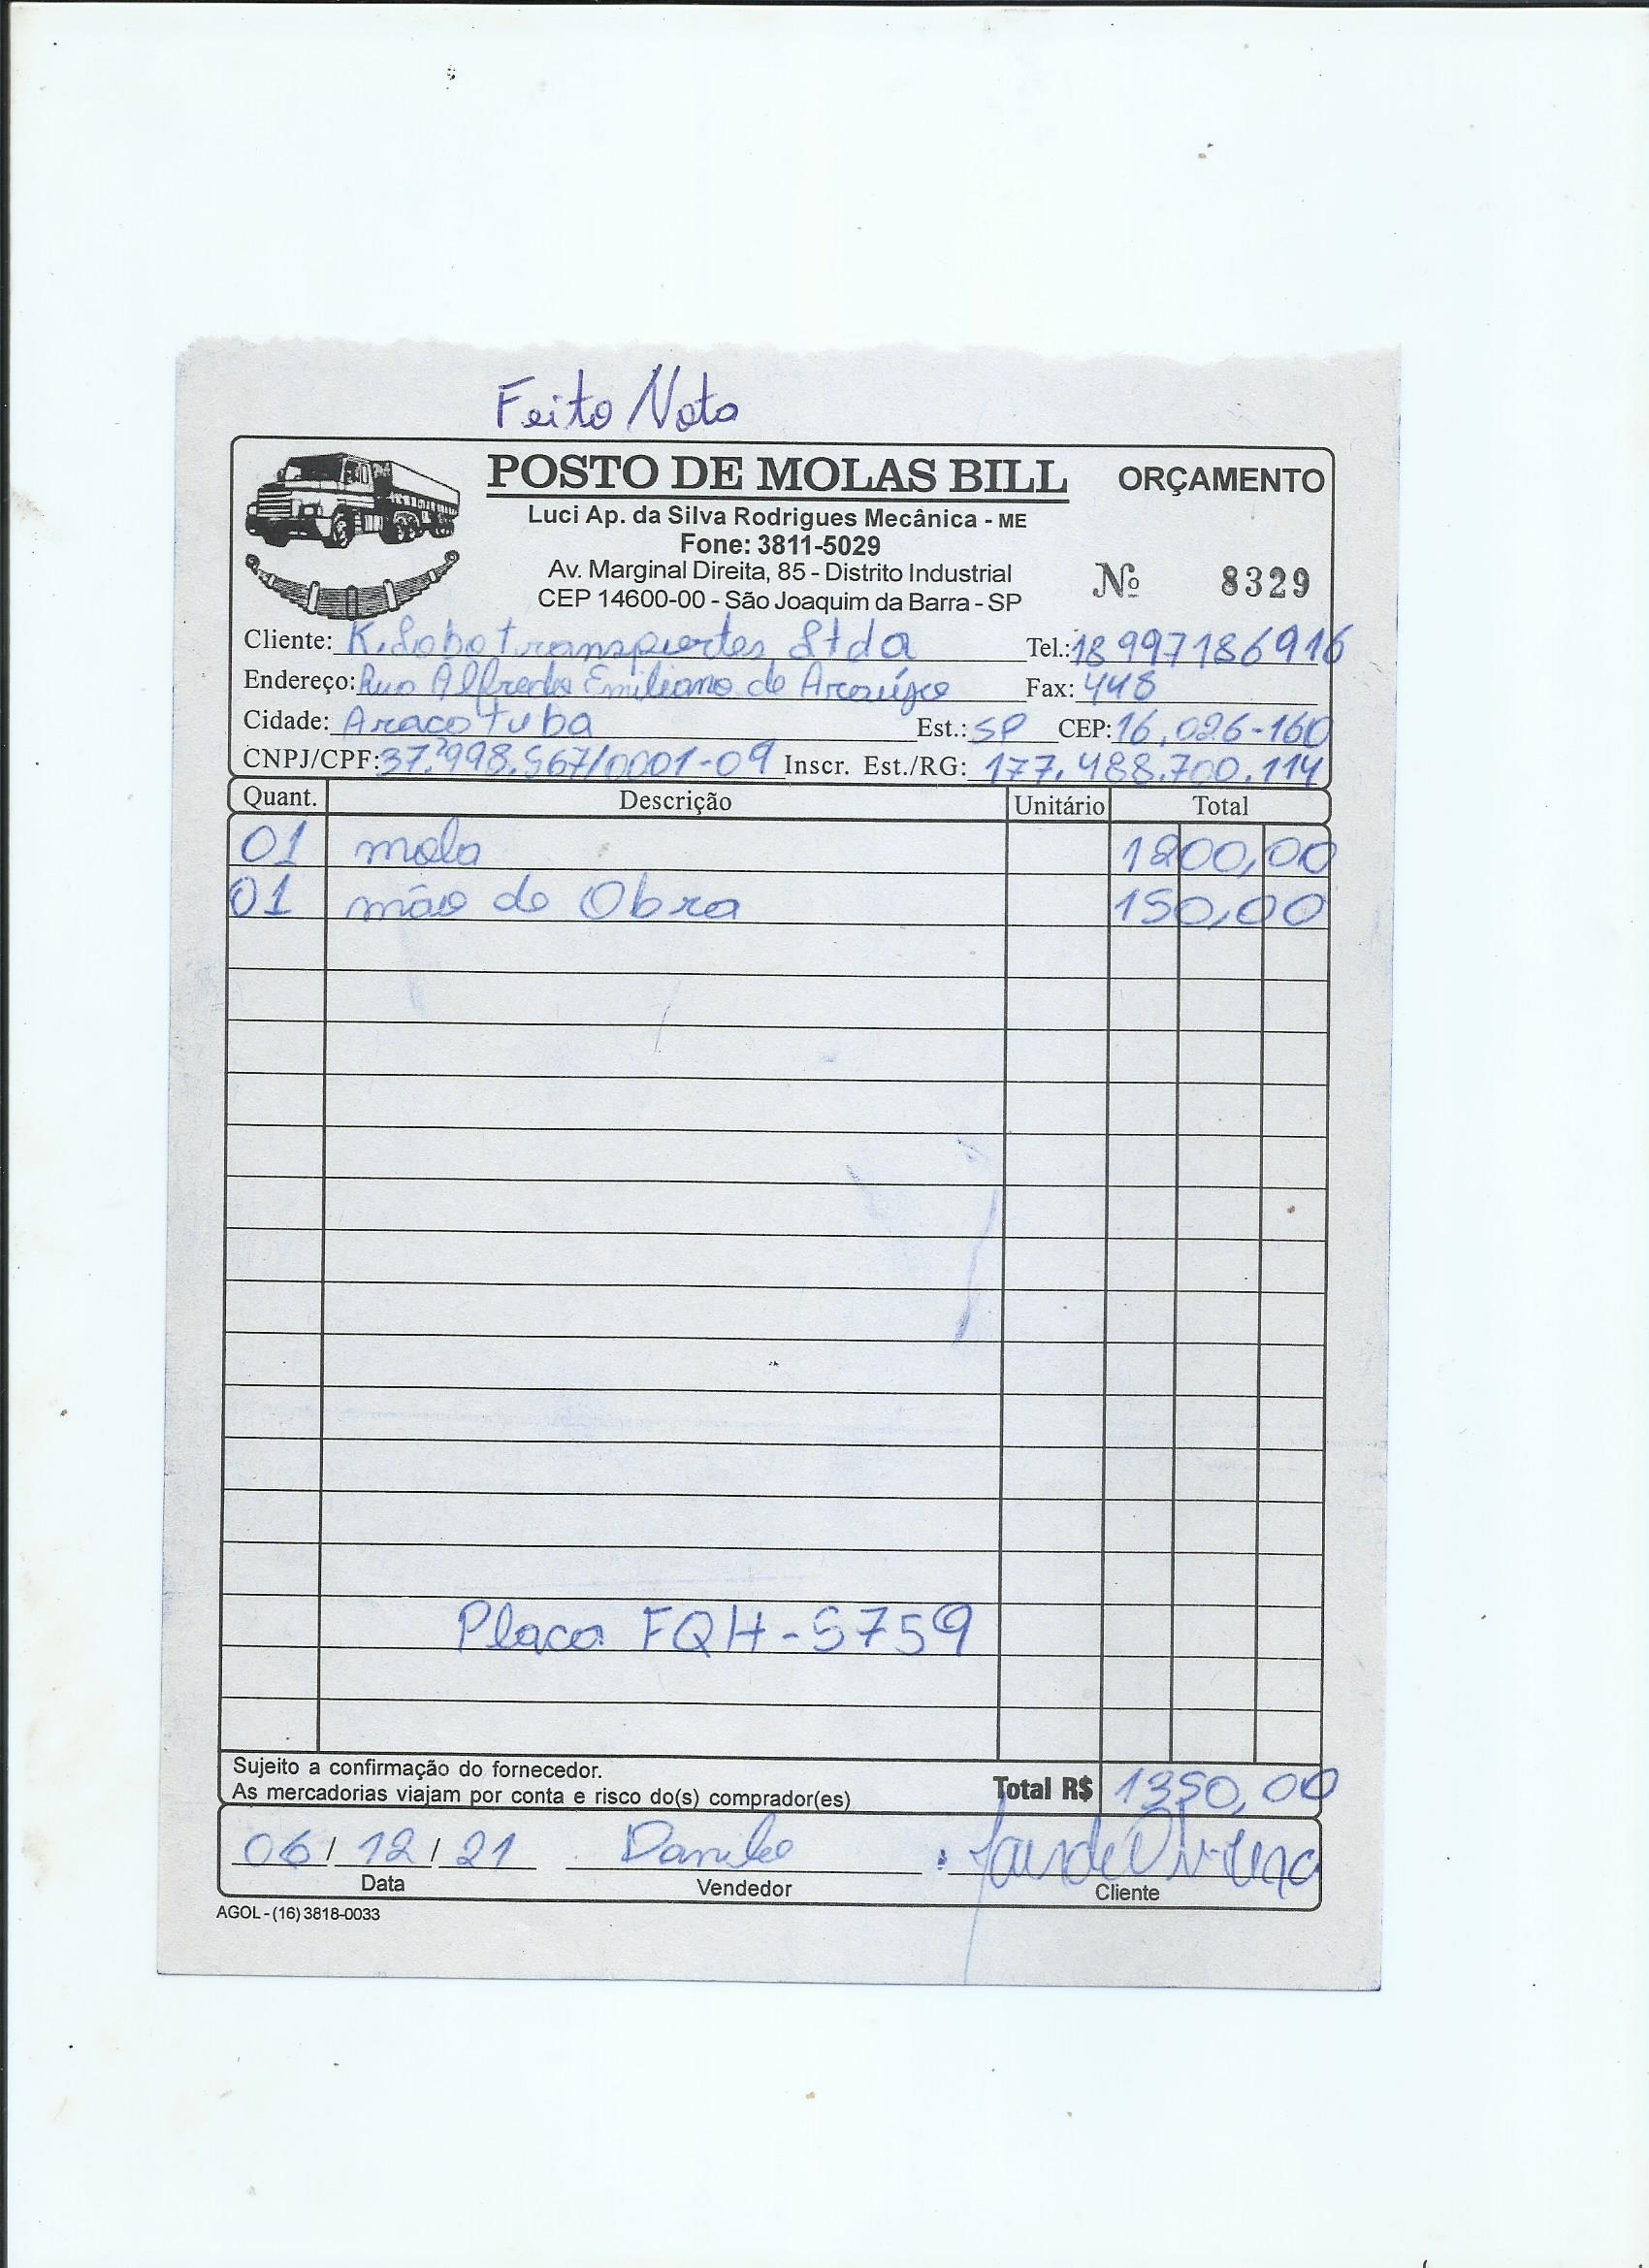 Feito Nota
POSTO DE MOLAS BILL ORÇAMENTO
Luci Ap. da Silva Rodrigues Mecânica - ME
Fone: 3811-5029
Av. Marginal Direita, 85 - Distrito Industrial
CEP 14600-00 - São Joaquim da Barra - SP
Nº 8329
Cliente: K. Lobo transportes Ltda Tel.: 18 997186916
Endereço: Rua Alfredo Emiliano de Araújo Fax: 448
Cidade: Aracatuba Est.: SP CEP: 16.026-160
CNPJ/CPF: 37.998.567/0001-09 Inscr. Est./RG: 177.488.700.114
Quant. Descrição Unitário Total
01 mola 1200,00
01 mão de Obra 150,00
Placa FQH-5759
Sujeito a confirmação do fornecedor.
As mercadorias viajam por conta e risco do(s) comprador(es) Total R$ 1350,00
06 / 12 / 21 Danilo
Data Vendedor Cliente
AGOL - (16) 3818-0033